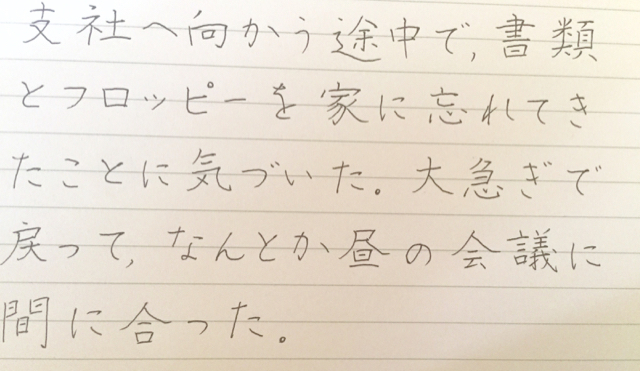 支社へ向かう途中で,書類
とフロッピーを家に忘れてき
たことに気づいた。大急ぎで
戻って,なんとか昼の会議に
間に合った。